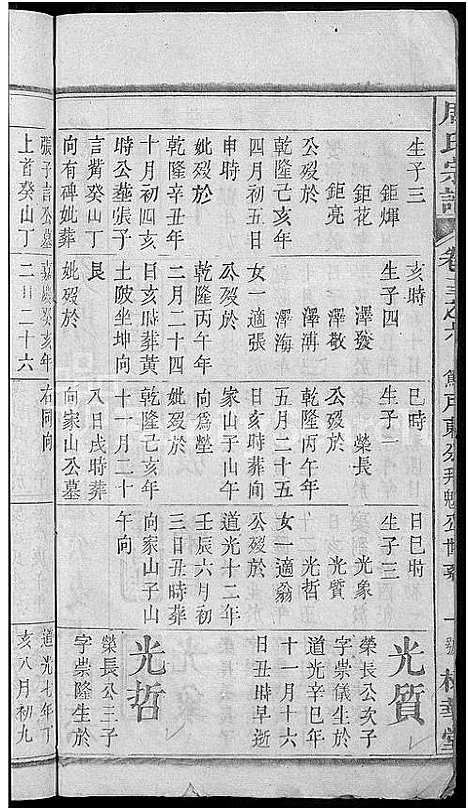 氏宗譜
卷三之六
東分拜魁公世系
一號
堂
生子三
鉅煇
鉅花
鉅亮
公歿於
乾隆己亥年
四月初五日
申時
妣歿於
乾隆辛丑年
十月初四亥
時公葬張子
言嘴癸山丁
向有碑妣葬
張子言公墓
上首癸山丁
亥時
生子四
澤發
澤敬
澤溥
澤海
女一適張
公歿於
乾隆丙午年
二月二十四
日亥時葬黃
土陂坐坤向
艮
妣歿於
嘉慶癸亥年
二月二十六
巳時
生子一
榮長
公歿於
乾隆丙午年
五月二十五
日亥時葬向
家山子山午
向爲塋
妣歿於
乾隆己亥年
十一月二十
八日戌時葬
向家山公墓
右同向
日巳時
生子三
光象
光質
光哲
女一適翁
公歿於
道光十二年
壬辰六月初
三日丑時葬
向家山子山
午向
光質
榮長公次子
字崇儀生於
道光辛巳年
十一月十六
日丑時早逝
光哲
榮長公三子
字崇隆生於
道光七年丁
亥八月初九